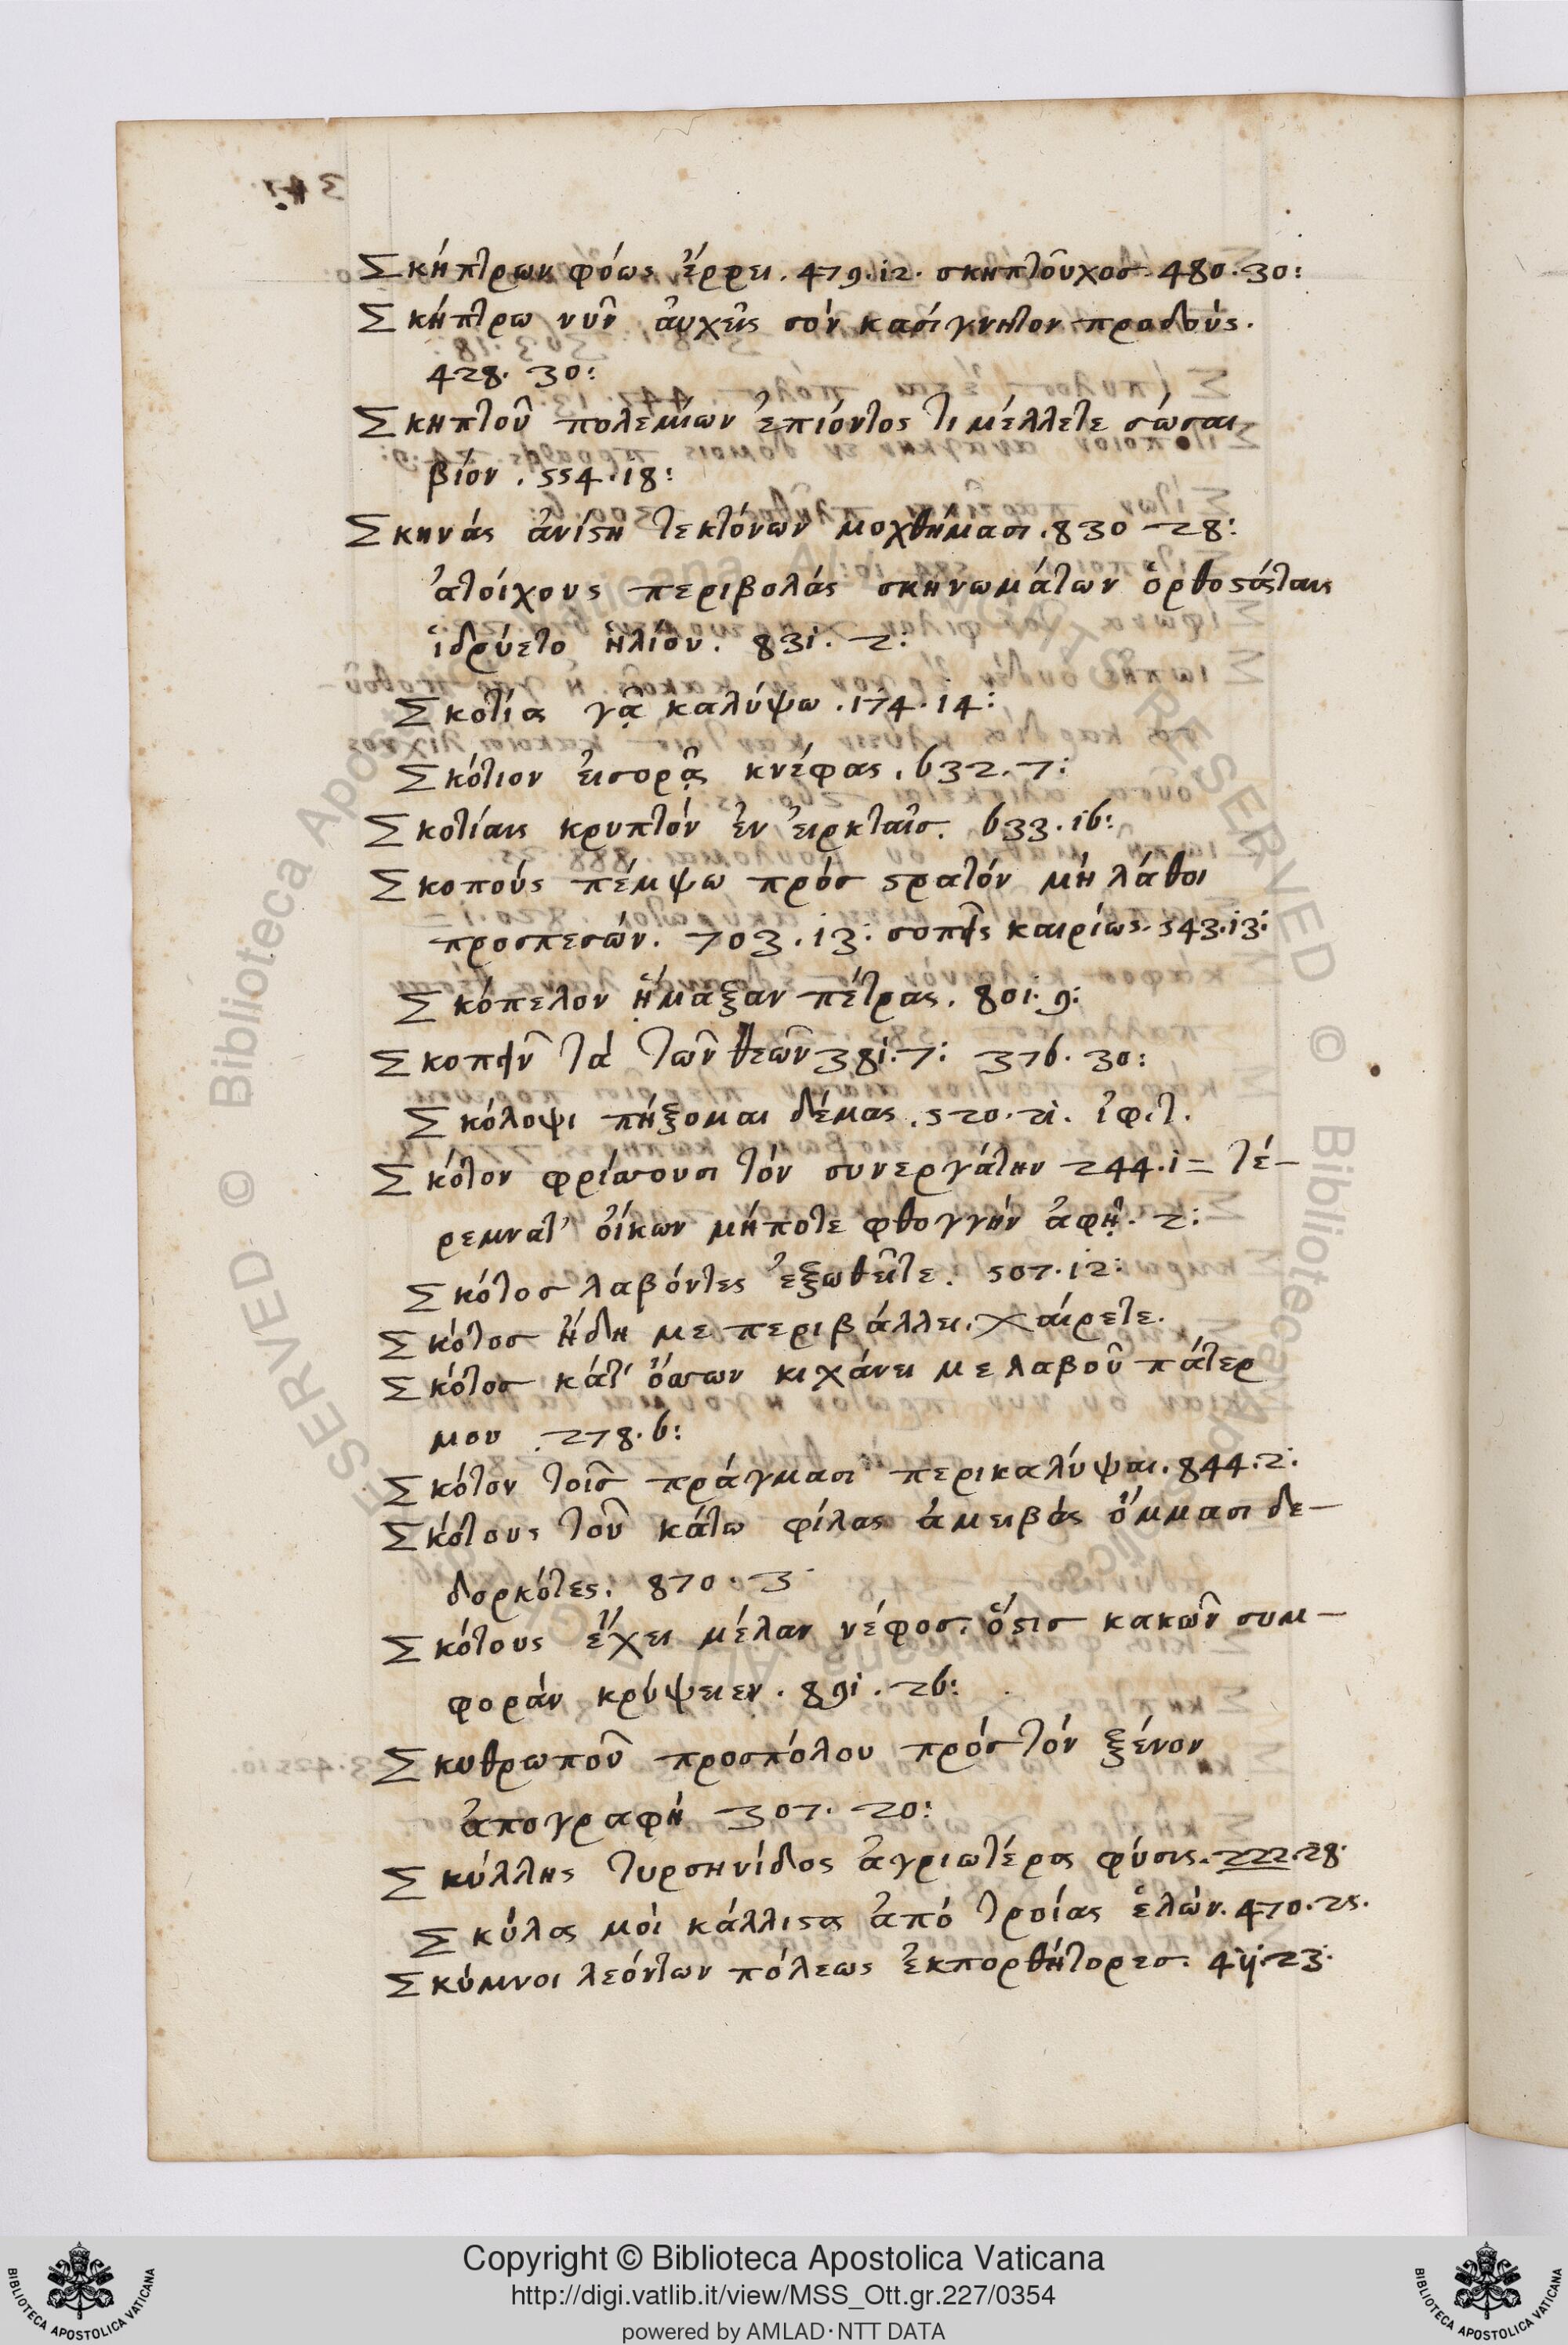 Σκήπτρων φόως ἔρρει. 479. 12. σκηπτοῦχοσ 480. 30:
Σκήπτρω νῦν ἀυχεῖς σὸν κασίγνητον προδούς.
428. 30:
Σκηπτοῦ πολεμίων ἐπιόντος τι μέλλετε σώσαι
βίον. 554. 18:
Σκηνάς ἀνίςη τεκτόνων μοχθήμασι. 830 28:
ἀτοίχους περιβολάς σκηνωμάτων ὀρθοςάταις
ἱδρύετο ἡλίου. 831. 2:
Σκοτίας γᾷ καλύψω. 174. 14:
Σκότιον ἐισορᾷς κνέφας. 632. 7:
Σκοτίαις κρυπτόν ἐν ἐιρκταῖσ. 633. 16:
Σκοπούς πέμψω πρόσ ςρατόν μὴ λάθοι
προσπεσών. 703. 13: καιρίως. 543. 13:
Σκόπελον ᾕμαξαν πέτρας. 801. 9:
Σκοπεῖν τὰ τῶν θεῶν 381. 7: 376. 30:
Σκόλοψι πήξομαι δέμας. 520. 21. ἰφ. τ.
Σκότον φρίσσουσι τόν συνεργάτην 244. 1 = τέ-
ρεμνατ’ ὀίκων μήποτε φθογγήν ἀφῇ. 2:
Σκότοσ λαβόντες ἐξωθεῖτε. 507. 12:
Σκότοσ ἤδη με περιβάλλει. χαίρετε.
Σκότοσ κάτ’ ὄσσων κιχάνει με λαβοῦ πάτερ
μου 278. 6:
Σκότον τοῖσ πράγμασι περικαλύψαι. 844. 2:
Σκότους τοῦ κάτω φίλας ἀμειβάς ὄμμασι δε-
δορκότες. 870. 3
Σκότους ἔχει μέλαν νέφοσ. ὅςισ κακῶν συμ-
φοράν κρύψειεν. 891. 26:
Σκυθρωποῦ προσπόλου πρόσ τόν ξένον
ἀπογραφή 307. 20:
Σκύλλης τυρσηνίδος ἀγριωτέρας φύσις. 222. 28.
Σκύλα μοί κάλλιςα ἀπό τροίας ἑλών. 470. 25.
Σκύμνοι λεόντων πόλεως ἐκπορθήτορεσ. 411. 23.
Copyright © Biblioteca Apostolica Vaticana
http://digi.vatlib.it/view/MSS_Ott.gr.227/0354
powered by AMLAD·NTT DATA
BIBLIOTECA APOSTOLICA VATICANA
BIBLIOTECA APOSTOLICA VATICANA